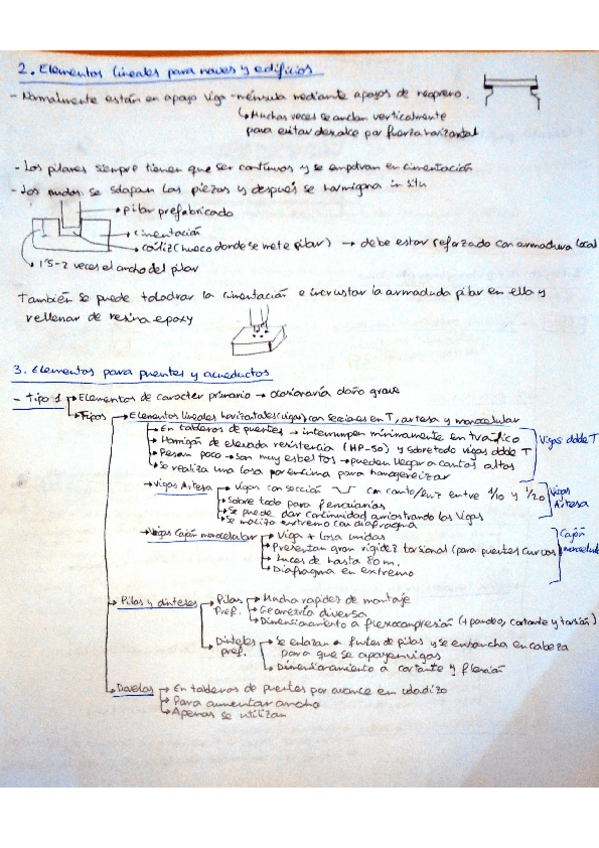 2. Elementos lineales para naves y edificios
- Normalmente están en apoyo viga-ménsula mediante apoyos de neopreno.
↳ Muchas veces se anclan verticalmente
para evitar descalce por fuerza horizontal
- Los pilares siempre tienen que ser continuos y se empotran en cimentación
- Los nudos se solapan las piezas y después se hormigona in situ
→ pilar prefabricado
→ cimentación
→ cáliz (hueco donde se mete pilar) → debe estar reforzado con armadura local
→ 1'5-2 veces el ancho del pilar
También se puede taladrar la cimentación e incrustar la armadura pilar en ello y
rellenar de resina epoxy
3. Elementos para puentes y acueductos
- Tipo 1 → Elementos de caracter primario → ocasionaría daño grave
→ Tipos → Elementos lineales horizontales (vigas) con secciones en T, artesa y monocelular
→ En tableros de puentes → interrumpen mínimamente en tráfico
→ Hormigón de elevada resistencia (HP-50) y sobre todo vigas doble T
→ Pesan poco → son muy esbeltos → pueden llegar a cantos altos
→ Se realiza una losa por encima para homogeneizar
Vigas doble T
→ Vigas Artesa → Vigas con sección con canto/luz entre 1/10 y 1/20
→ Sobre todo para ferroviarias
→ Se puede dar continuidad arriostrando las vigas
→ Se maciza extremo con diafragma
Vigas Artesa
→ Vigas Cajón monocelular → Viga + losa unidas
→ Presentan gran rigidez torsional (para puentes curvos)
→ Luces de hasta 80 m.
→ Diafragma en extremo
Cajón monocelular
→ Pilas y dinteles → Pilas Pref. → Mucha rapidez de montaje
→ Geometría diversa
→ Dimensionamiento a flexocompresión (+ pandeo, cortante y torsión)
→ Dinteles pref. → Se enlazan a fustes de pilas y se ensancha en cabeza
para que se apoyen vigas
→ Dimensionamiento a cortante y flexión
→ Dovelas → En tableros de puentes por avance en voladizo
→ Para aumentar ancho
→ Apenas se utilizan